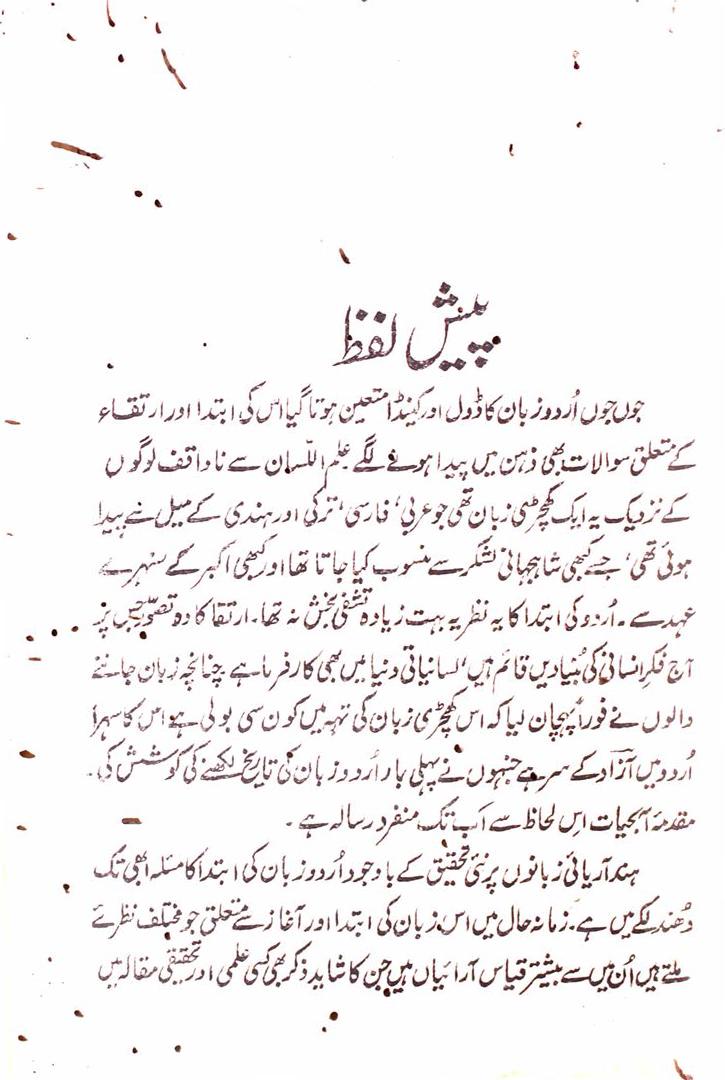 پیش لفظ
جوں جوں اُردو زبان کا ڈول اور کینڈا متعین ہوتا گیا اس کی ابتدا اور ارتقاء
کے متعلق سوالات بھی ذہن میں پیدا ہونے لگے علم اللّسان سے ناواقف لوگوں
کے نزدیک یہ ایک کھچڑی زبان تھی جو عربی، فارسی، ترکی اور ہندی کے میل سے پیدا
ہوئی تھی، جسے کبھی شاہجہانی لشکر سے منسوب کیا جاتا تھا اور کبھی اکبر کے سنہرے
عہد سے۔ اُردو کی ابتدا کا یہ نظریہ بہت زیادہ تشفی بخش نہ تھا۔ ارتقا کا وہ تصوّر جس پر
آج فکرِ انسانی کی بُنیادیں قائم ہیں، لسانیاتی دنیا میں بھی کارفرما ہے چنانچہ زبان جاننے
والوں نے فوراً پہچان لیا کہ اس کھچڑی زبان کی تہہ میں کون سی بولی ہے اس کا سہرا
اُردو میں آزاد کے سر ہے جنہوں نے پہلی بار اُردو زبان کی تاریخ لکھنے کی کوشش کی۔
مقدمۂ آبحیات اِس لحاظ سے اَب تک منفرد رسالہ ہے۔
ہند آریائی زبانوں پر نئی تحقیق کے باوجود اُردو زبان کی ابتدا کا مسئلہ ابھی تک
دُھندلکے میں ہے۔ زمانہ حال میں اس زبان کی ابتدا اور آغاز سے متعلق جو مختلف نظرئے
ملتے ہیں اُن میں سے بیشتر قیاس آرائیاں ہیں جن کا شاید ذکر بھی کسی علمی اور تحقیقی مقالہ میں